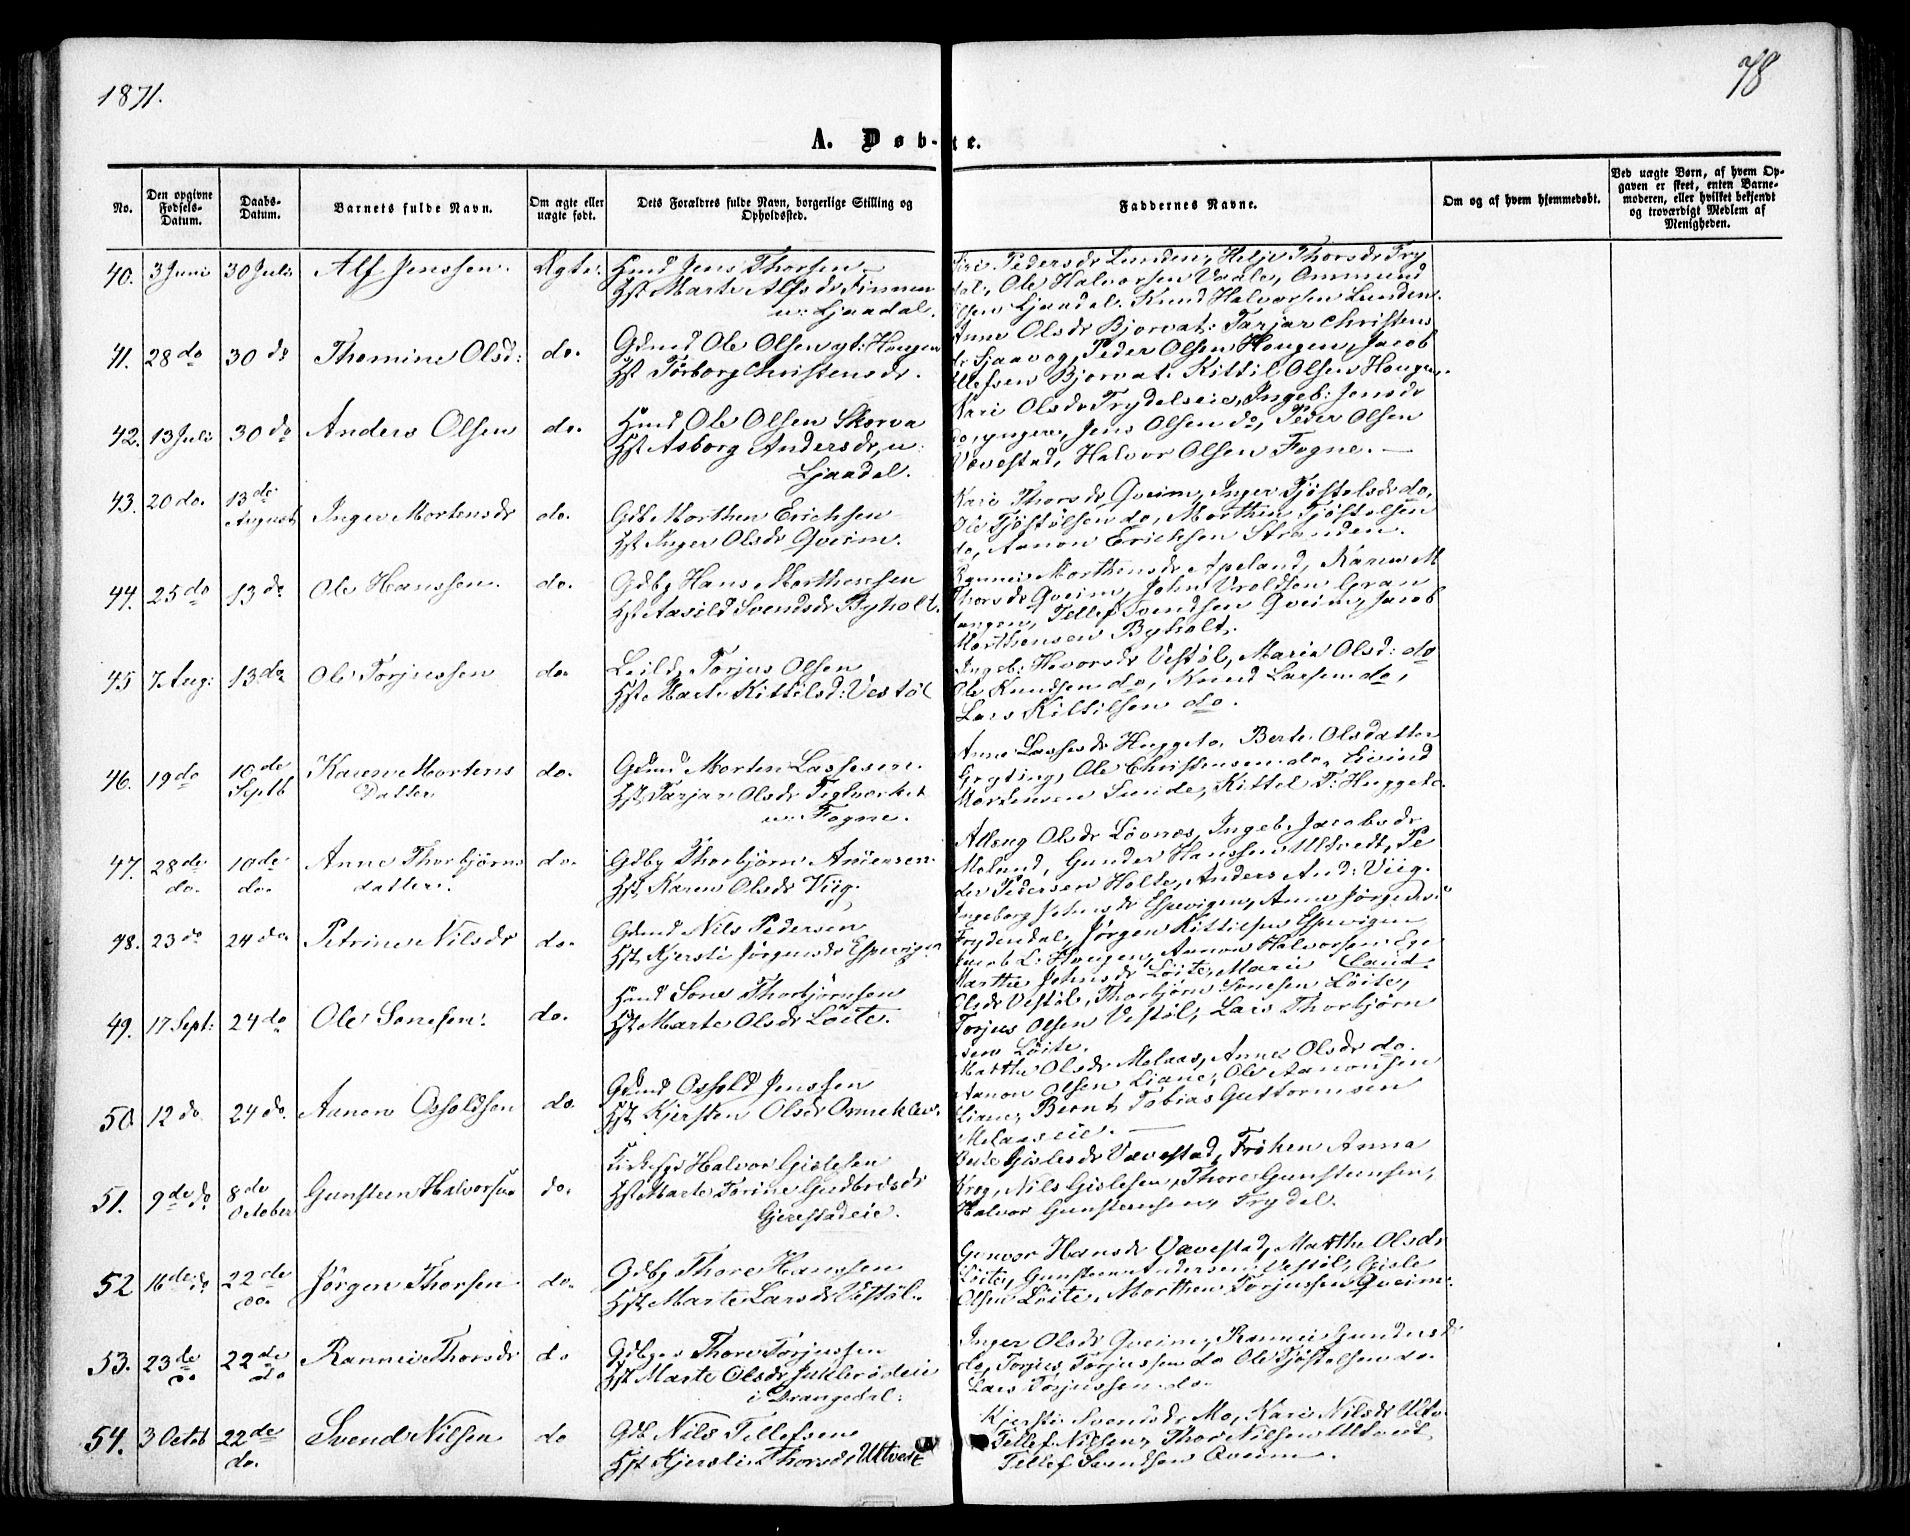 1871.
78
A. Døb-te.
No.
Den opgivne Fødsels-Datum.
Daabs-Datum.
Barnets fulde Navn.
Om ægte eller uægte født.
Dets Forældres fulde Navn, borgerlige Stilling og Opholdssted.
Faddernes Navne.
Om og af hvem hjemmedøbt.
Ved uægte Børn, af hvem Opgaven er skeet, enten Barnemoderen, eller hvilket bekjendt og troværdigt Medlem af Menigheden.
40. 3 Juni 30 Juli Alf Jenssen. Ægte. Hmd Jens Thorsen
Hst Marte Alfsdr Finmen
u: Ljaadal.
Pedersdr Lunden, Helje Thorsdr Try
dal, Ole Halvorsen Vaale, Ommund
Olsen Ljaadal. Knud Halvorsen Lunden.
41. 28 do 30 do Thomine Olsd: do. Gdmd Ole Olsen yt: Hougen
Hst Torborg Christensdr.
Anne Olsdr Bjorvat. Tarjar Christens
dr Sjaavog, Peder Olsen Hougen, Jacob
Ellefsen Bjorvat. Kittil Olsen Hougen.
42. 13 Juli 30 do Anders Olsen do. Hmd Ole Olsen Skorva
Hst Asborg Andersdr, u:
Ljaadal.
Kari Olsdr Trydalseie, Ingeb: Jensdr
do, yngere, Jens Olsen do, Peder Olsen
Vævestad, Halvor Olsen Fogne.
43. 20 do. 13 de August Inger Mortensdr do. Gdb Morthen Erichsen
Hst Inger Olsdr Qveim.
Kari Thorsdr Qveim, Inger Tjøstelsdr do,
Ole Tjøstølsen do, Morthen Tjøstolsen
do, Aanon Erichsen Stranden.
44. 25 do 13 do Ole Hanssen. do. Gdbg Hans Morthensen
Hst Aasild Svendsdr Byholt.
Rannei Morthensdr Apeland, Karen M
Thorsdr Qveim, John Vroldsen Gran
langen, Tellef Svendsen Qveim, Jacob
Morthensen Byholt.
45 7 Aug: 13 do Ole Torjussen do. Leild Torjus Olsen
Hst Marte Kittilsd: Vestøl
Ingeb: Hovorsdr Vestøl, Maria Olsd: do
Ole Knudsen do, Knud Larsen do,
Lars Kittilsen do.
46. 19 do 10 de Septb Karen Mortens
Datter
do. Gdmd Morten Lassesen.
Hst. Tarjar Olsdr Teglværket
u: Fogne.
Anne Lassesdr Huggeto, Berte Olsdatter
Gryting, Ole Christensen do, Eivind
Mortensen Sunde, Kittel T: Huggeto.
47. 28 de do. 10 de do. Anne Thorbjørns
datter.
do. Gdbg Thorbjørn Andersen.
Hst. Karen Olsdr Viig.
Aslaug Olsdr Løvnæs, Ingeb. Jacobsdr
Moland, Gunder Hanssen Ultvedt, Pe
der Pedersen Holte, Anders And: Viig.
48. 23 do 24 do. Petrine Nilsdr do. Gdmd Nils Pedersen
Hst. Kjersti Jørgensdr Espevigen
Ingeborg Johnsdr Espevigen, Anne Jørgensdr
Frydendal, Jørgen Kittilsen Espevigen
Jacob L: Hougen, Aanon Halvorsen Ege
land.
49. 17 Sept: 24 do Ole Sonesen. do. Hmd Sone Thorbjørnsen
Hst Marte Olsdr Løite.
Marthe Johnsdr Løite, Marie
Olsdr Vestøl, Thorbjørn Sonesen Løite,
Torjus Olsen Vestøl, Lars Thorbjørn
sen Løite.
50. 12 do 24 do. Aanon Osfoldsen do. Gdmd Osfold Jenssen
Hst Kjersten Olsdr Ommeklev.
Marthe Olsdr Melaas, Anne Olsdr do.
Aanon Olsen Liane, Ole Aanonsen
Liane, Bernt Tobias Guttormsen
Melaaseie.
51. 9 de do. 8 de October Gunsteen Halvorsen do. Kirkesgr Halvor Gislesen
Hst Marte Torine Gudbrdsdr
Gjerestadeie.
Berte Gislesdr Vævestad, Frøken Anna
Krog, Nils Gislesen, Thore Gunstensen,
Halvor Gunstensen, Trydal.
52 16 de do 22 de do. Jørgen Thorsen do. Gdbg Thore Hanssen
Hst Marte Larsdr Vestøl.
Gunvor Hansdr Vævestad, Marthe Olsdr
Løite, Gunsteen Andersen Vestøl, Gisle
Olsen Løite, Morthen Torjussen Qveim.
53. 23 de do 22 de do Rannei Thorsdr do Gdbges Thore Torjussen
Hst Marte Olsdr Jukleødeie
i Drangedal.
Inger Olsdr Qveim, Rannei Gundersd
do, Torjus Torjussen do Ole Tjøstelsen do.
Lars Torjussen do.
54. 3 Octob 22 de do. Svend Nilsen do Gdb Nils Tellefsen
Hst Kjersti Thorsdr Ultvedt
Kjersti Svendsdr Mo, Kari Nilsdr Ultv.
Tellef Nilsen, Thor Nilsen Ultvedt
Tellef Svendsen Qveim.